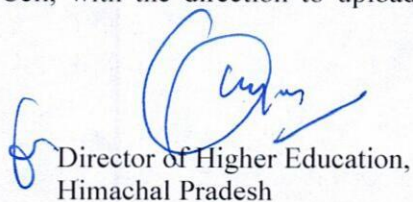 with the direction to upload
Director of Higher Education,
Himachal Pradesh